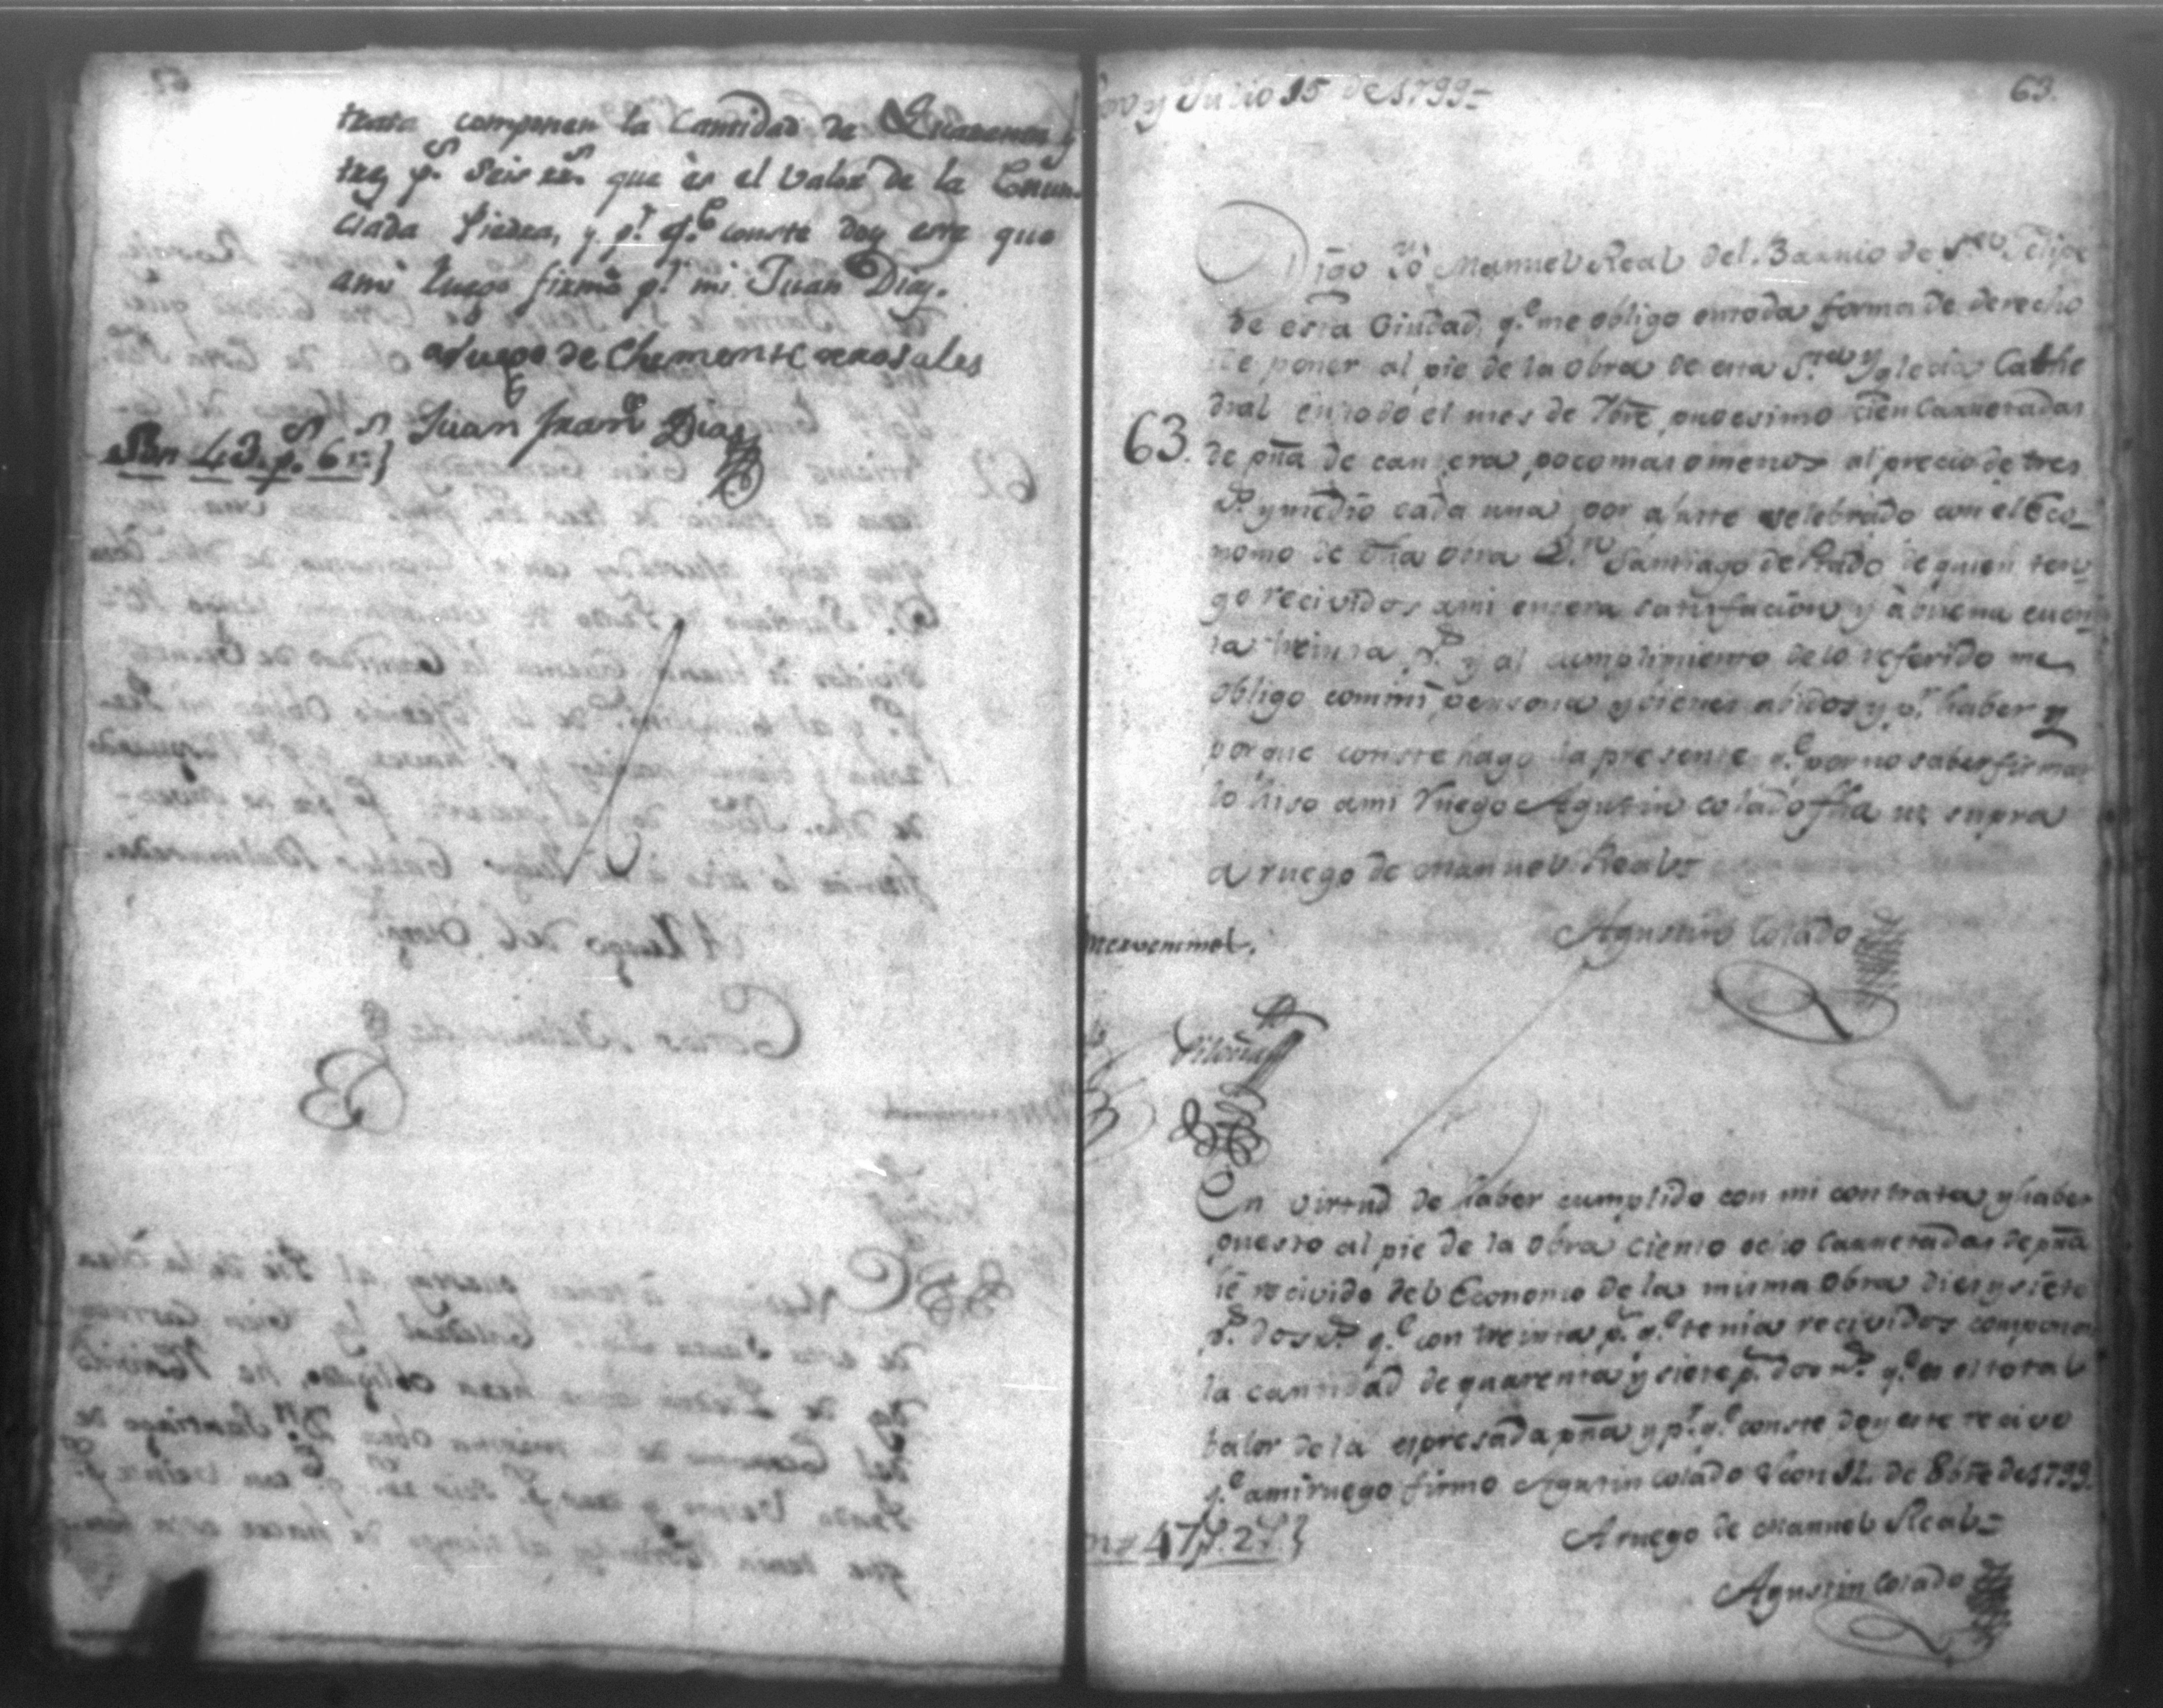 trata componen la Cantidad de Quarenta y
trez p.s Seis rr.s que ès el valor de la Enun-
ciada Piedra, y p.r q.e conste doy este que
ami Ruego firmò p.r mi Juan Diaz.
aruego de Chemente de rosales
Juan Fran.co Diaz
Son 43. p.s 6 r.s }
Leon y Julio 15 de 1799=
63.
Digo Yò Manuel Real del Barrio de S.n Felipe
de esta Ciudad, q.e me obligo entoda forma de derecho
de poner al pie de la obra de esta S.ta Yglecia Cathe
dral en todo el mes de 7bre procsimo cien Carretadas
63.
de pña de cantera, poco mas o menos al precio de tres
rr.s y medio cada una por ajuste selebrado con el Eco-
nomo de dha obra D.n Santiago de Prado de quien ten-
go recividos ami entera satisfacion y à buena cuen-
ta treinta p.s y al cumplimiento de lo referido me
obligo con mi persona y vienes abidos y p.r haber y
porque conste hago la presente q.e por no saber firmar
lo hiso ami ruego Agustin colado fha ut supra
a ruego de Manuel Real=
Agustin Colado
Piloña
En virtud de haber cumplido con mi contrata y haber
puesto al pie de la obra ciento ocho Carretadas de pña
he recivido del Economo de la misma Obra dies y siete
p.s dos rr.s q.e con treinta p.s q.e tenia recividos componen
la cantidad de quarenta y siete p.s dos rr.s q.e es el total
balor de la espresada pña y p.r q.e conste doy este recivo
q.e ami ruego firmo Agustin Colado Leon 12. de 8bre de 1799.
A ruego de Manuel Real=
47 p.s 2 r.s }
Agustin Colado